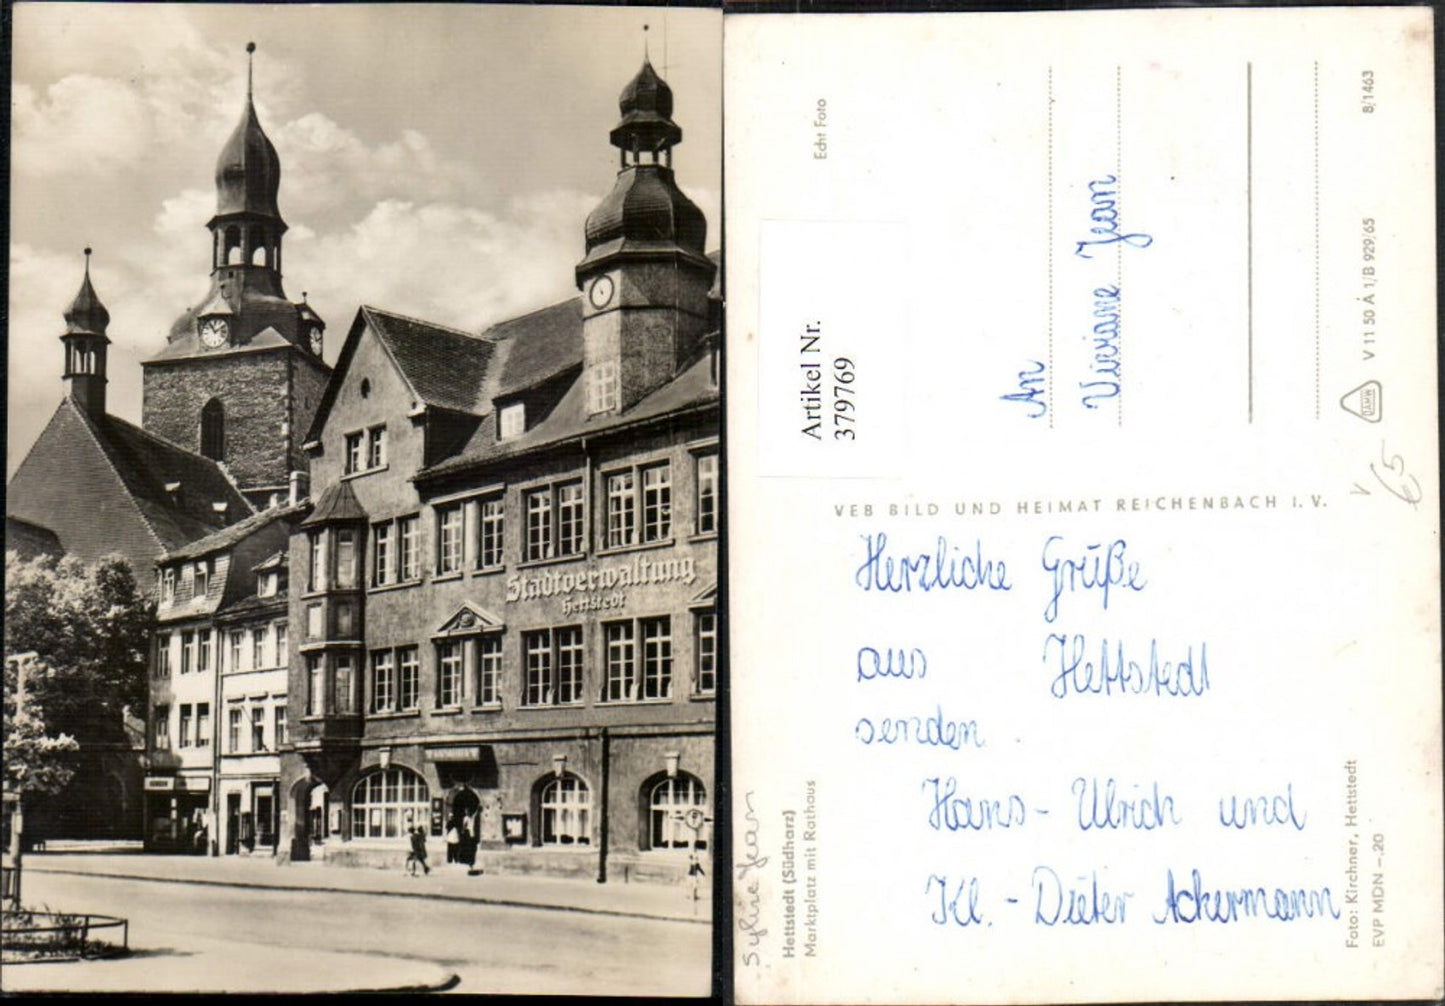 Stadtverwaltung
Hettstedt
Echt Foto
Artikel Nr.
379769
An
Viviane Jean
8/1463
V 11 50 A 1/B 929/65
DAMW
€5
V
VEB BILD UND HEIMAT REICHENBACH I. V.
Herzliche Grüße
aus Hettstedt
senden
Hans-Ulrich und
Kl.-Dieter Ackermann
Sylvie Jean
Hettstedt (Südharz)
Marktplatz mit Rathaus
Foto: Kirchner, Hettstedt
EVP MDN -.20